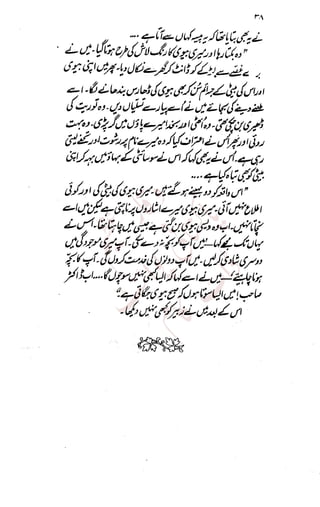 ۳۸
نے یہ بھی بتایا تھا کہ یہ پیسہ کہاں سے آتا ہے ....
"وہ بکتا رہا اور میری بیوی کا رنگ لاش کی طرح ہوتا گیا۔ میں نے
بڑے غصے سے لڑکے کو ڈانٹ کر گھر سے نکال دیا۔ پھر میں اپنی بیوی
اور اس کی بیٹی کے جرائم سن کر بھی بیوی کی ڈھارس بندھانے لگا۔ اسے
طعنے دینے کی بجائے میں نے اسے پیار سے تسلیاں دیں۔ وہ تو ریت کی
ڈھیری بن چکی تھی۔ وہ اٹھی اور سجدے میرے پاؤں میں گر پڑی۔ وہ بہت
روئی اور پھر اس نے اعتراف کیا کہ وہ میرے نام پر رشوت اور تحفے لیتی
رہی ہے۔ اس نے یہ بھی کہا کہ اس نے سوسائٹی کے بہاؤ میں بہہ کر اپنی
بیٹی کو بھی تباہ کیا ہے....
"اس واقعہ کو دو مہینے ہو گئے ہیں۔ میری بیوی کی بیٹی کی اور کوئی
اطلاع نہیں آئی۔ میری بیوی میرے اشاروں پر ناچتی ہے لیکن میں اسے
نچاتا نہیں۔ اب وہ ویسی بیوی بن گئی ہے جیسی میں چاہتا تھا۔ اس نے
یہاں تک مجھے کہا — 'میں آپ کو بچہ نہ دے سکی۔ آپ میری موجودگی میں
دوسری شادی کر لیں۔ میں آپ دونوں کی خدمت کروں گی۔ آپ کا بچہ
ہونا چاہیئے' — میں نے اسے کہا کہ ایسا کبھی نہیں سوچوں گا.... اب ڈاکٹر
صاحب! میں ایسا سوتا ہوں کہ صبح بیوی جگاتی ہے"
اس کے بعد میں نے زبیر کو کبھی نہیں دیکھا۔